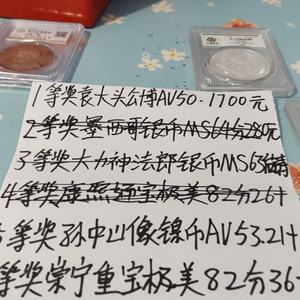 1等奖袁大头公博AV50.1700元
2等奖墨西哥银币MS64分280元
3等奖大力神法郎银币MS63
4等奖康熙通宝极美82分26十
5等奖孙中山像镍币AV53.21十
等奖崇宁重宝极美82分36